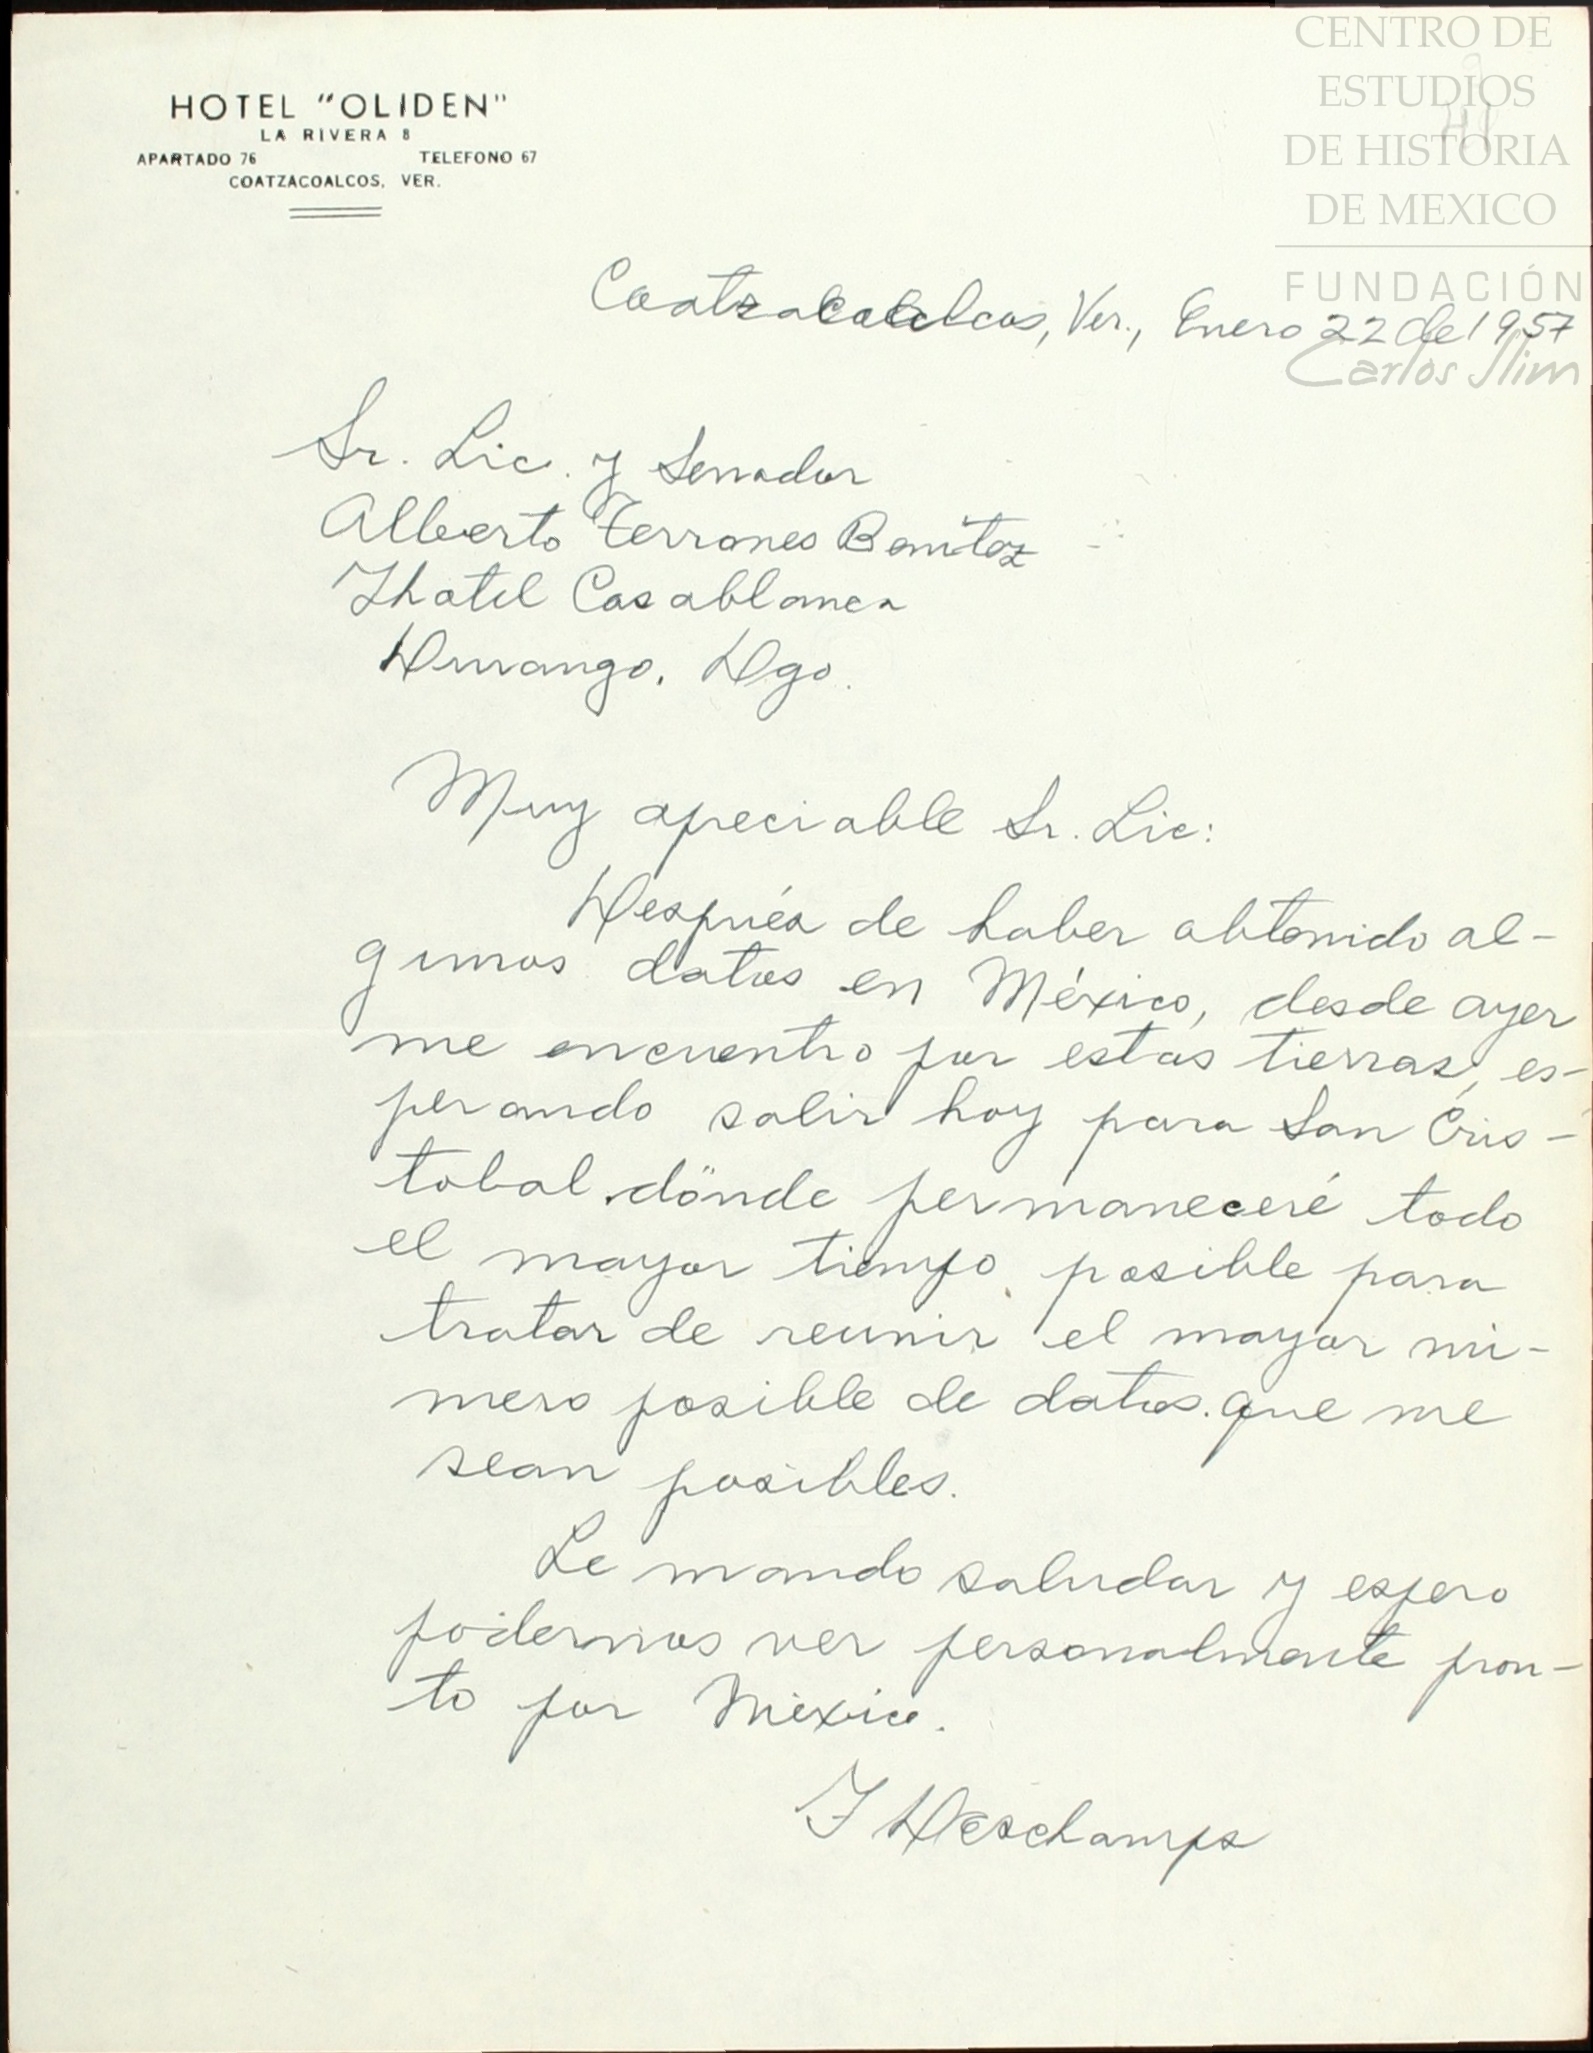 CENTRO DE
ESTUDIOS
DE HISTORIA
DE MEXICO
FUNDACIÓN
Carlos Slim
HOTEL "OLIDEN"
LA RIVERA 8
APARTADO 76 TELEFONO 67
COATZACOALCOS, VER.
Coatzacoalcos, Ver., Enero 22 de 1957
Sr. Lic. y Senador
Alberto Terrones Benitez
Hotel Casablanca
Durango, Dgo.
Muy apreciable Sr. Lic:
Después de haber obtenido al-
gunos datos en México, desde ayer
me encuentro por estas tierras, es-
perando salir hoy para San Cris-
tobal dónde permaneceré todo
el mayor tiempo posible para
tratar de reunir el mayor nú-
mero posible de datos que me
sean posibles.
Le mando saludar y espero
podernos ver personalmente pron-
to por México.
F Deschamps